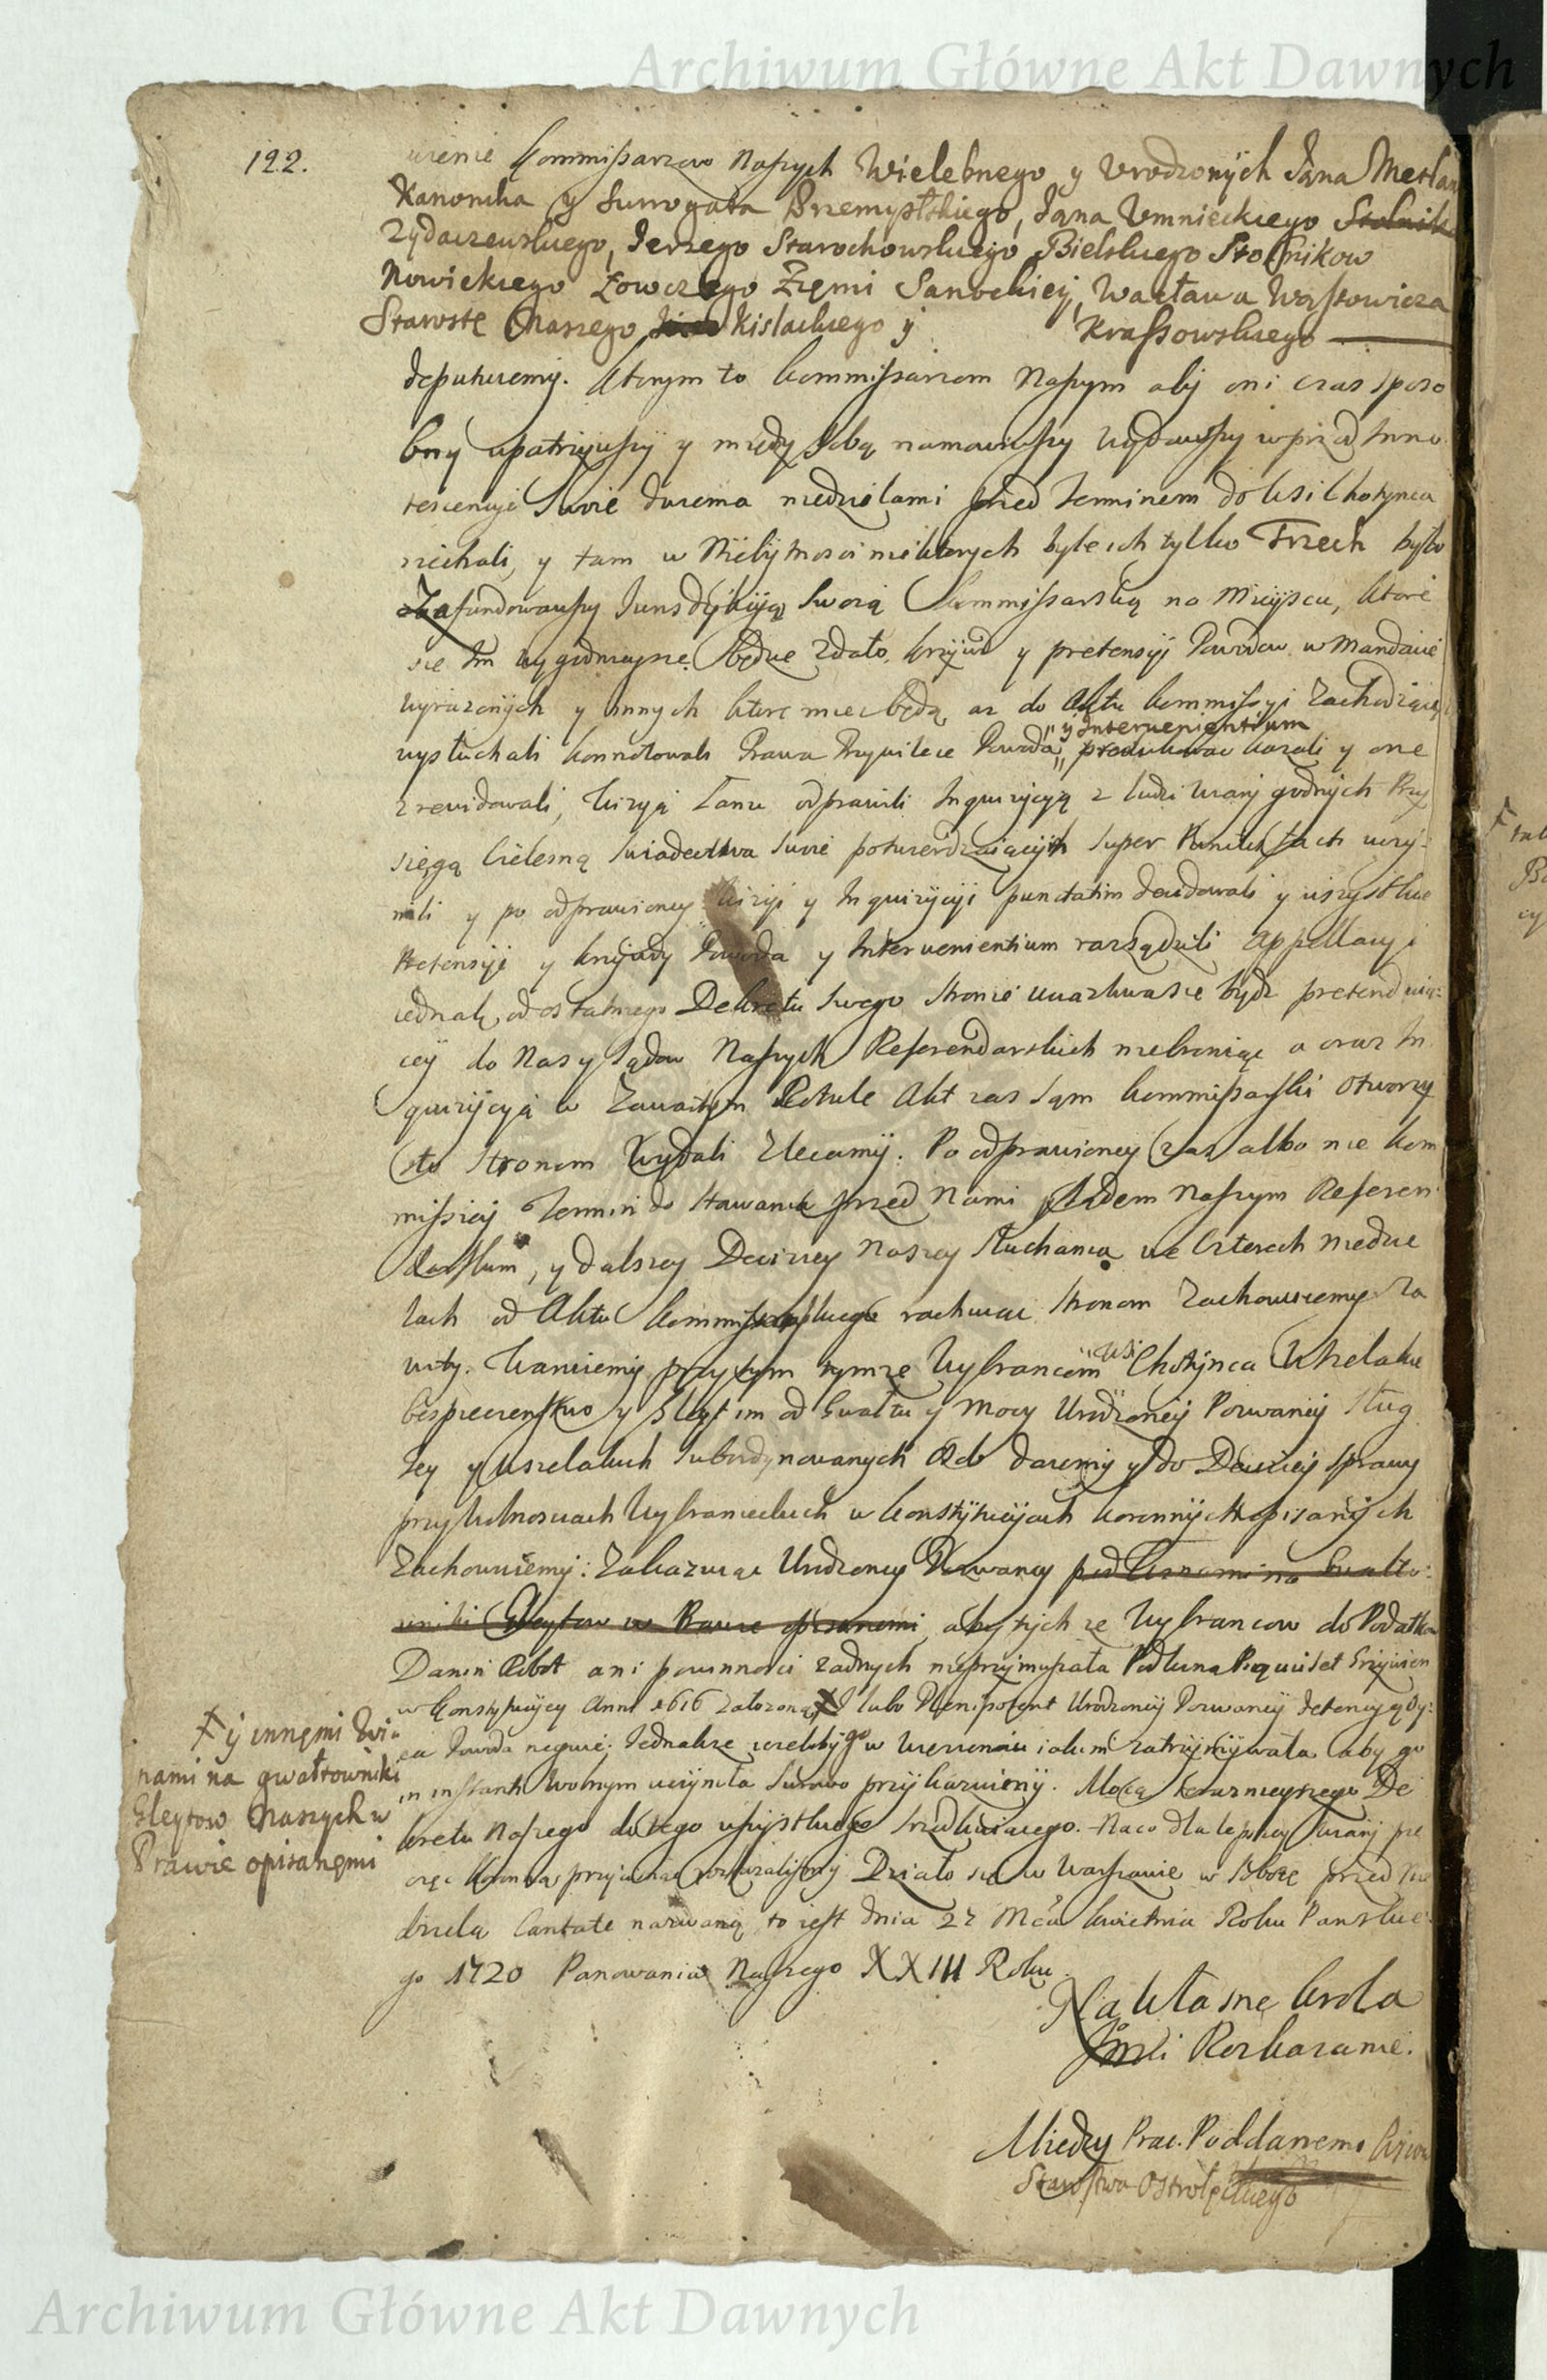 Archiwum Główne Akt Dawnych
122.
Kommissarzow Naszych Wielebnego y Vrodzonych Jana
Kanonika y Surrogata Przemyslskiego, Jana Vmnieckiego Stolnik
Zydaczewskiego, Jerzego Starochowskiego Bielskiego Stolnikow
Nowickiego Łowczego Ziemi Sanockiey, Wacława Wassowicza
Staroste Naszego Kislackiego y Krassowskiego
deputuiemy. Ktorym to Kommissarzom Naszym aby oni czas sposo
bny upatrzywszy y między sobą namowiwszy wydawszy wprzod Inno
tescencyi swoie dwiema niedzielami przed Terminem do wsi Chotynca
ziechali, y tam w Niebytnosci niektorych byle ich tylko Trzech było
Zafundowawszy Jurisdykcyją Swoią Kommissarską na Mieyscu, ktore
sie Im wygodnieysze będzie zdało, krzywd y pretensyi Powodow w Mandacie
wyrazonych y innych ktore miec będą, az do Aktu Kommissyi Zachodzących
wysłuchali konnotowali Prawa Przywileie Powoda
" y Intervenientium
produkowac kazali y one
zrewidowali, Wizyą Łanu odprawili Inquizycyą z ludzi wiary godnych Przy
sięgą Cielesną swiadectwa swoie potwierdzaiących super Punctis uczy:
nili y po odprawioney Wizyi y Inquizycyi punctatim decidowali y wszystkie
Pretensyie y krzywdy Powoda y Intervenientium rozsądzili Appellacyi
iednak, od ostatniego Dekretu swego stronie uciązliwą się bydz pretenduią:
cey do Nas y Sądow Naszych Referendarskich niebroniąc a oraz In
quizycyą w Zawartym Rotule Akt zas sam Kommissarski Otworzy
sto Stronom Wydali Zlecamy. Po odprawioney zas albo nie Kom
missiey Termin do stawania przed Nami Sądem Naszym Referen
darskim, y dalszey Decizyey Naszey słuchania we czterech niedzie
lach od Aktu Kommissarskiego rachuiąc Stronom Zachowuiemy Za
wity. Waruiemy przytym tymze Wybrancom
wsi
Chotynca Wszelakie
bespieczenstwo y Gleyt im od Gwałtu y Mocy Urodzoney Pozwaney Sług
Jey y wszelakich subordynowanych Osob daiemy y do Decizyi sprawy
przy wolnosciach Wybranieckich w Konstytucyiach koronnych opisanych
Zachowuiemy: Zakazuiąc Urodzoney Pozwaney pod Winami na Gwałto:
wniki Gleytow w Prawie opisanemi, aby tych ze Wybrancow do Podatkow
Danin Robot ani powinnosci zadnych nieprzymuszała Pod winą
w Konstytucyey Anni 1616 załozoną lubo Plenipotent Urodzoney Pozwaney detencyą Oy:
ca Powoda neguie: Jednakze iezeliby go w Wiezieniu iakim zatrzymywała, aby go
in instanti wolnym uczyniła surowo przykazuiemy. Mocą terazniejszego De
kretu Naszego do tego wszystkiego srzodkuiącego. Na co dla lepszey wiary pie
częc Koronna przycisnąc rozkazalismy Działo się w Warszawie w Sobotę przed Nie
dzielą Cantate nazwaną to iest dnia 27 Mca kwietnia Roku Panskie
go 1720 Panowania Naszego XXIII Roku
Ŧ y innemi Wi
nami na gwałtowniki
Gleytow Naszych w
Prawie opisanemi
Na Własne krola
Jmci Rozkazanie.
Miedzy Prac. Poddanemi
Starostwa Ostrołęckiego
Archiwum Główne Akt Dawnych